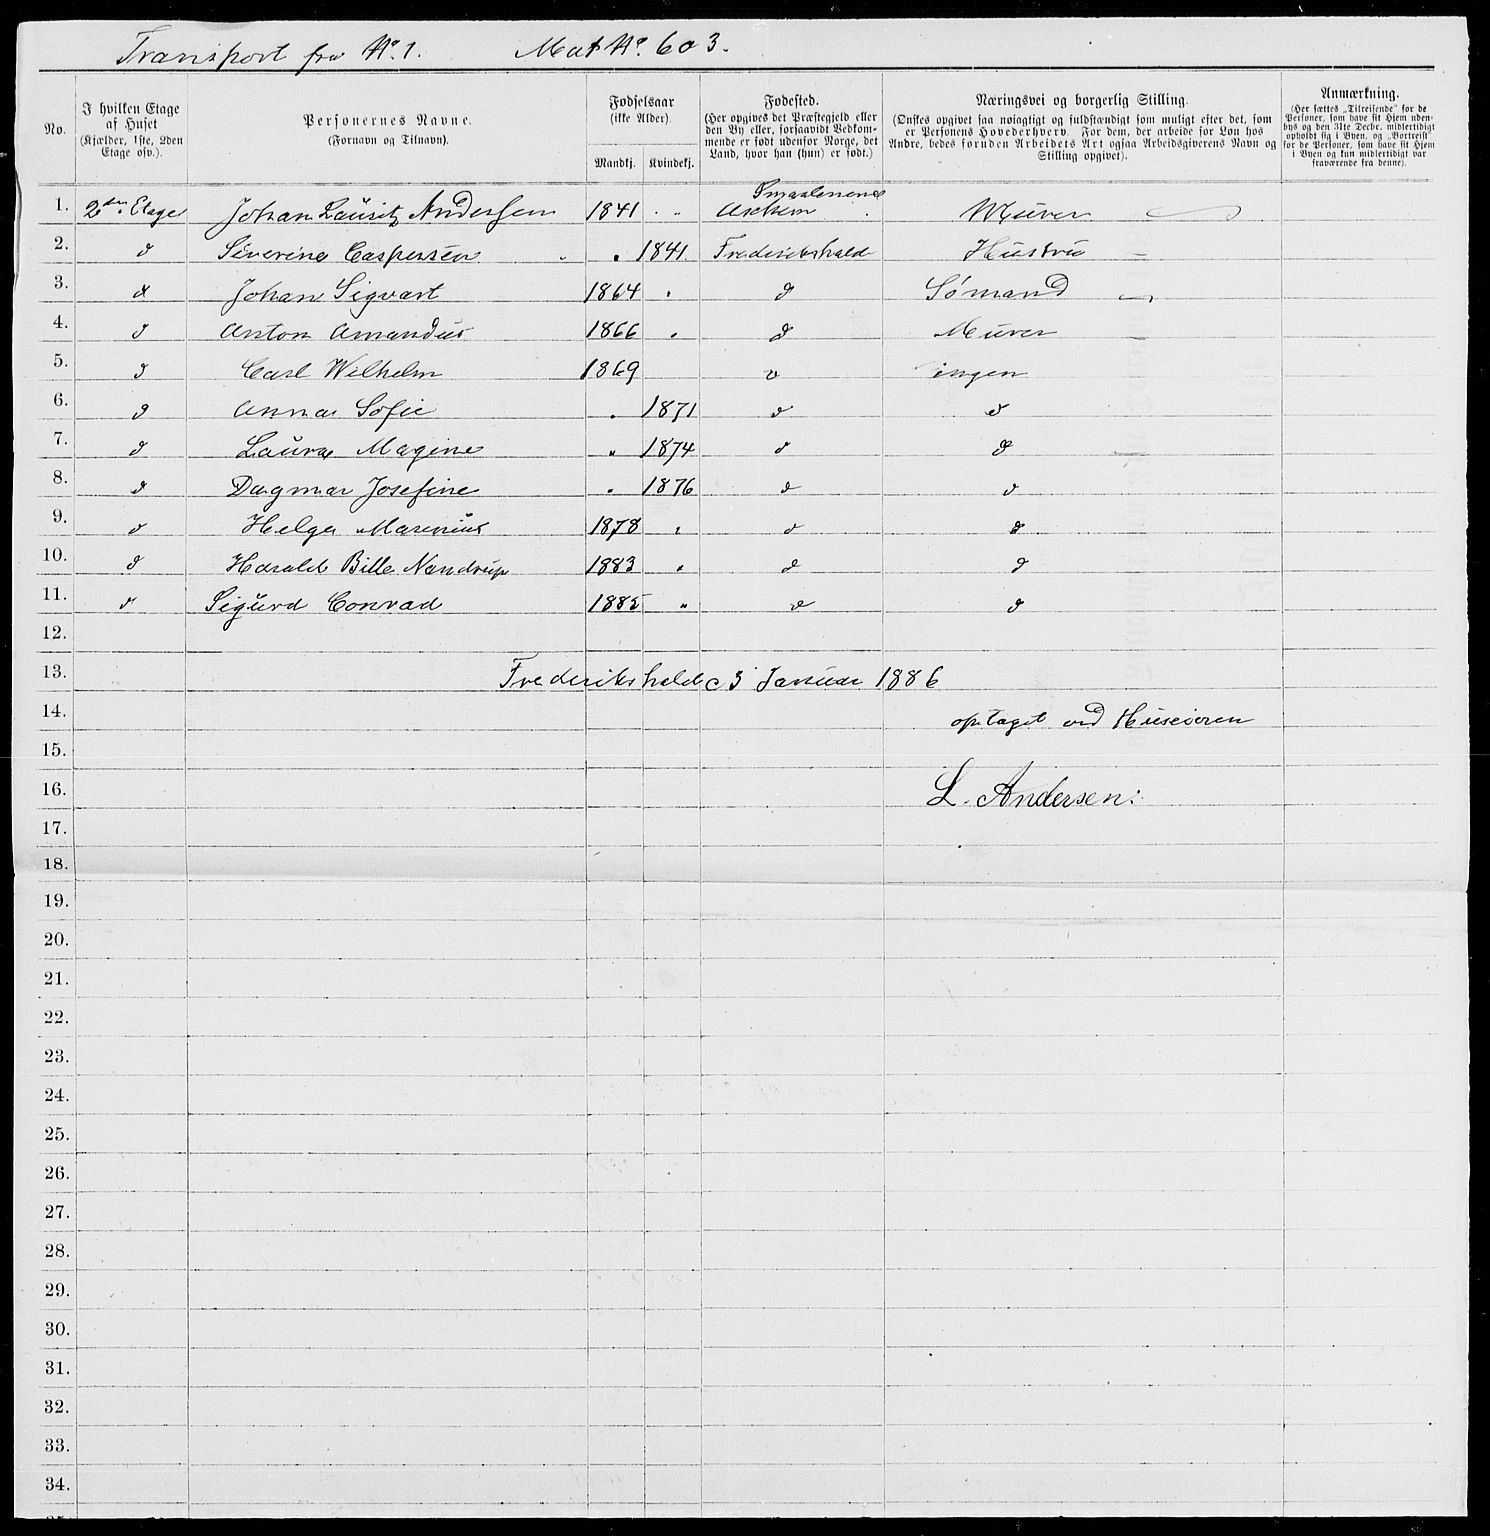 Transport fra No. 1. Mat No. 603.
No.
I hvilken Etage
af Huset
(Kjælder, 1ste, 2den
Etage osv.).
Personernes Navne.
(Fornavn og Tilnavn).
Fødselsaar
(ikke Alder).
Mandkj. Kvindekj.
Fødested.
(Her opgives det Præstegjeld eller
den By eller, forsaavidt Vedkom-
mende er født udenfor Norge, det
Land, hvor han (hun) er født.)
Næringsvei og borgerlig Stilling.
(Ønskes opgivet saa nøiagtigt og fuldstændigt som muligt efter det, som
er Personens Hovederhverv. For dem, der arbeide for Løn hos
Andre, bedes foruden Arbeidets Art ogsaa Arbeidsgiverens Navn og
Stilling opgivet).
Anmærkning.
(Her sættes „Tilreisende" for de
Personer, som have sit Hjem uden-
bys og den 31te Decbr. midlertidigt
opholdt sig i Byen, og „Bortreist"
for de Personer, som have sit Hjem
i Byen og kun midlertidigt var
fraværende fra denne).
Smaalenene
1. 2den Etage Johan Lauritz Andersen 1841 " Askim Murer
2. d Severine Caspersen " 1841 Frederikshald Hustru
3. d Johan Sigvart 1864 " d Sømand
4. d Anton Amandus 1866 " d Murer
5. d Carl Wilhelm 1869 d ingen
6. d Anna Sofie " 1871 d d
7. d Laura Magine " 1874 d d
8. d Dagmar Josefine " 1876 d d
9. d Helge Marenius 1878 " d d
10. d Harald Bille Nandrup 1883 " d d
11. d Sigurd Conrad 1885 " d d
12.
13. Frederikshald 3 Januar 1886
14. optaget ved Huseieren
15.
16. L. Andersen.
17.
18.
19.
20.
21.
22.
23.
24.
25.
26.
27.
28.
29.
30.
31.
32.
33.
34.